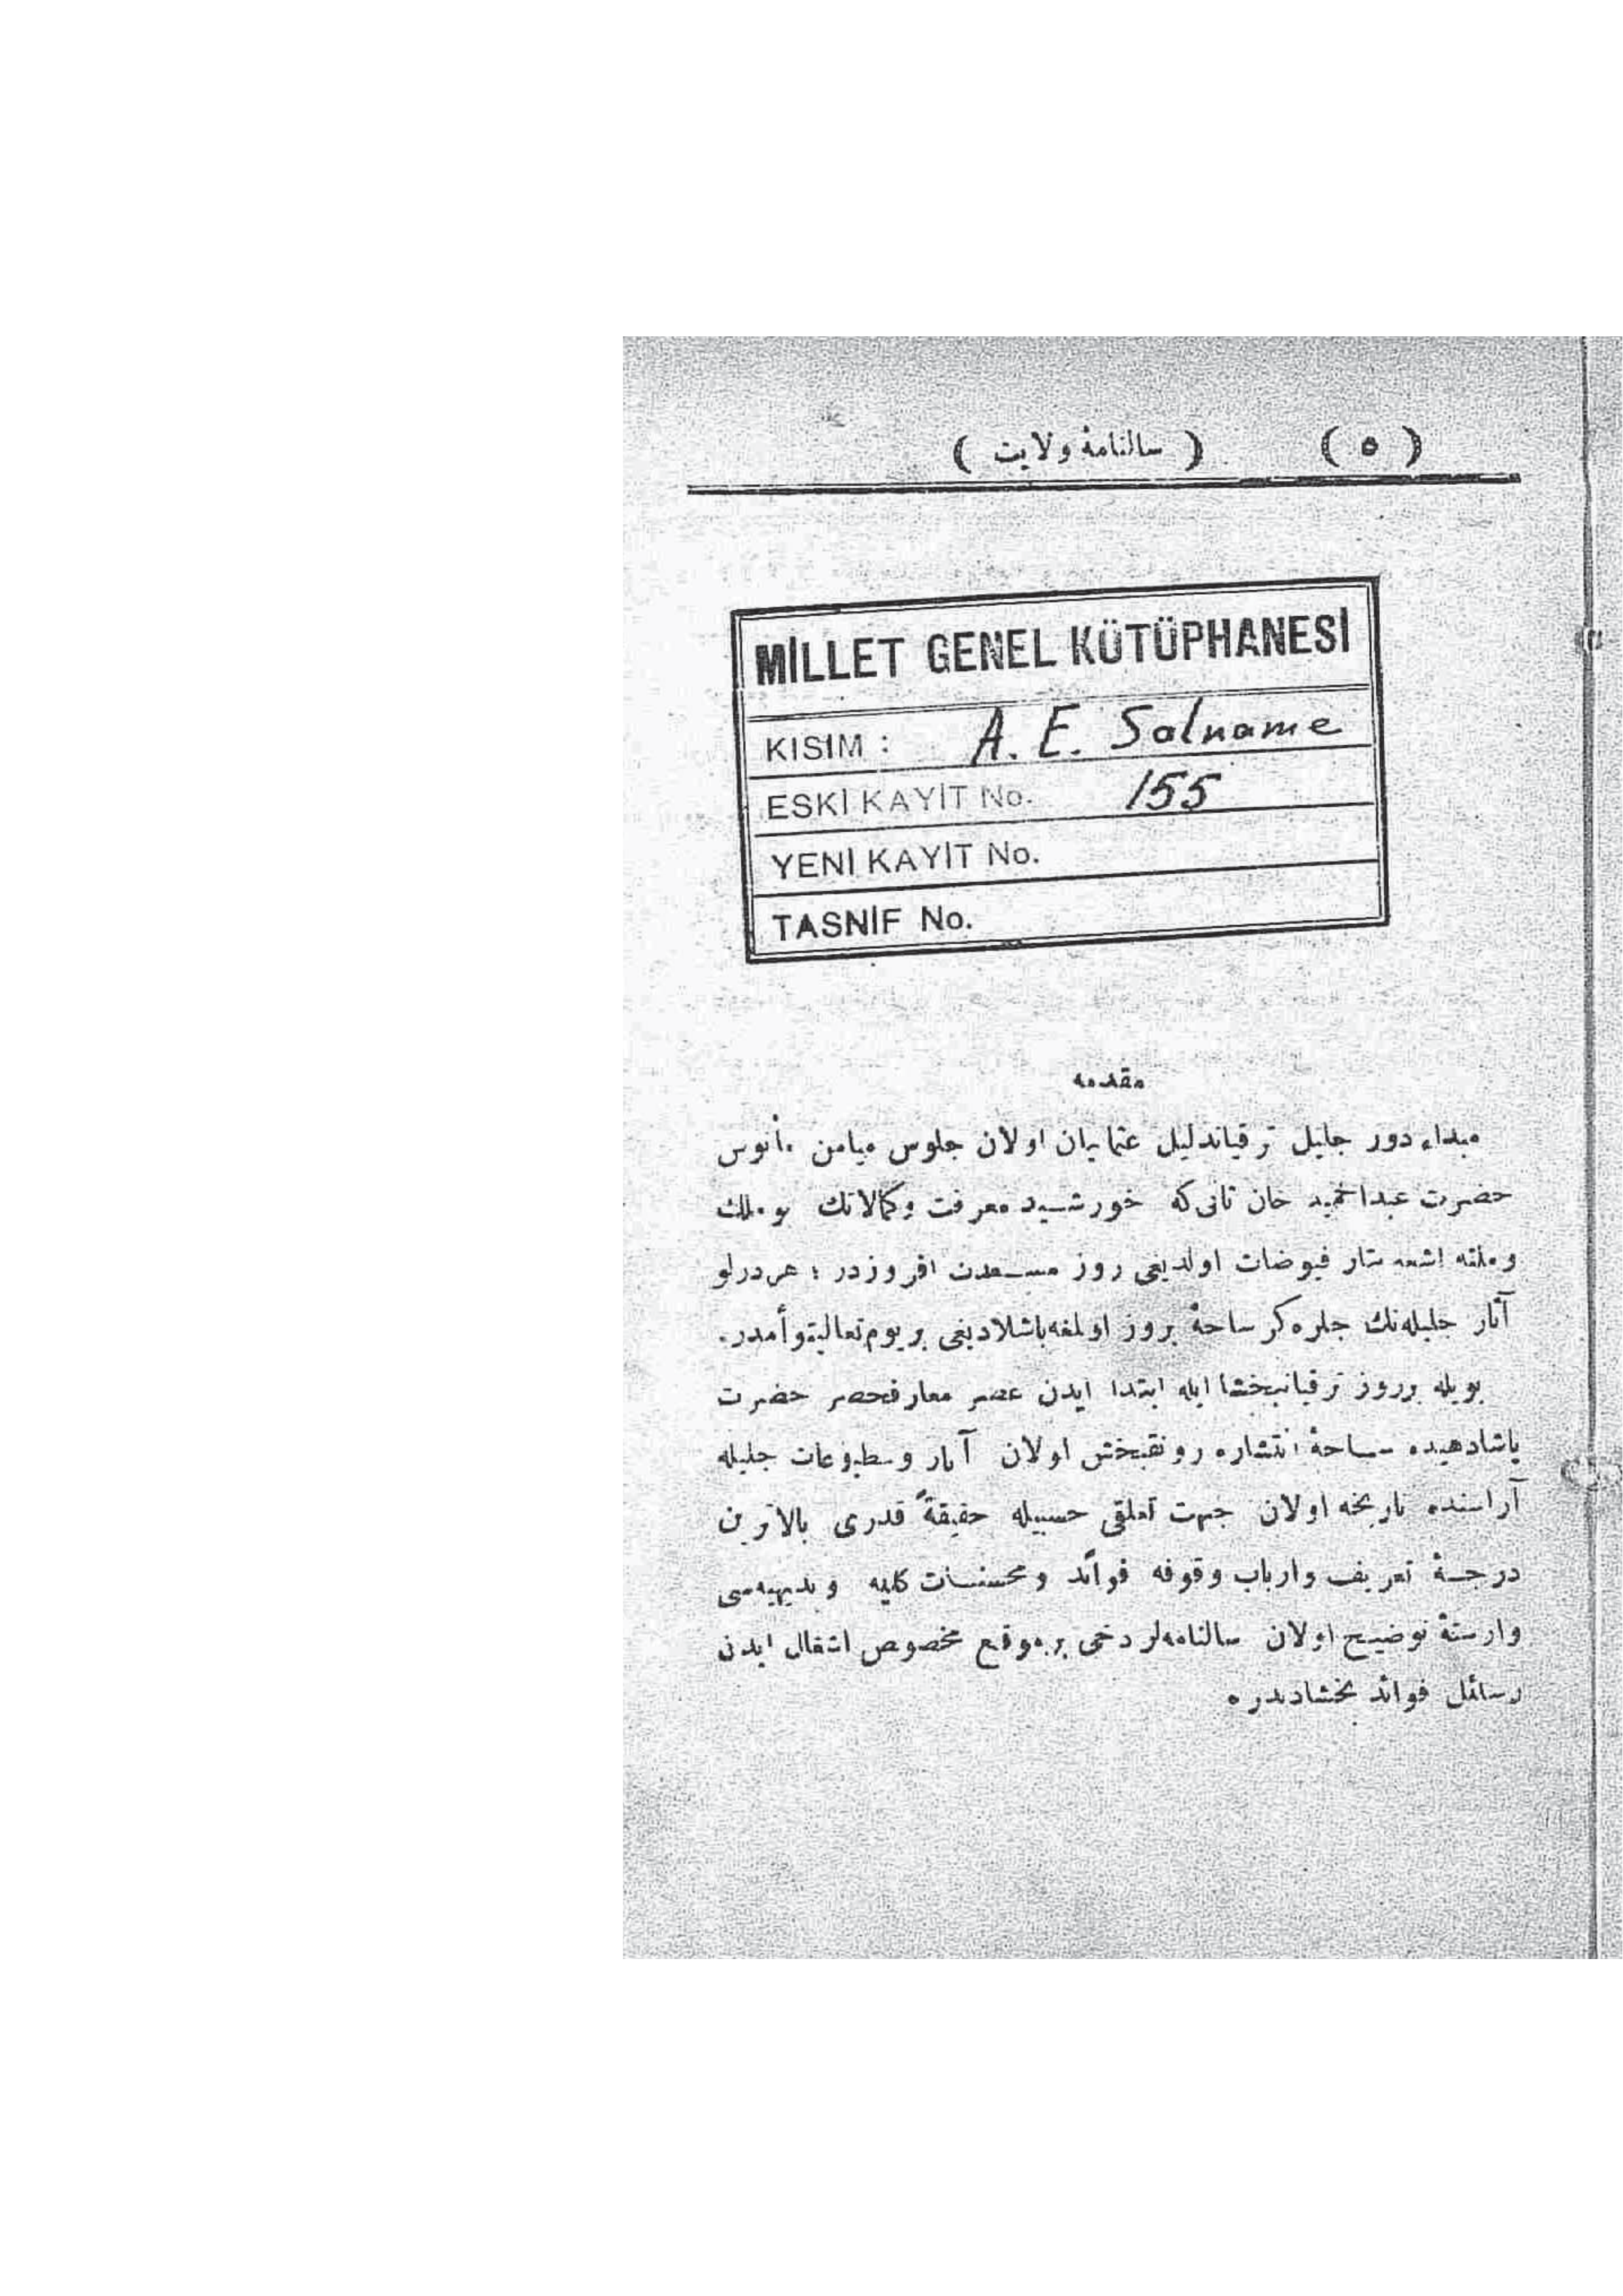 ( ٥ ) ( سالنامۀ ولايت )
MİLLET GENEL KÜTÜPHANESİ
KISIM : A. E. Salname
ESKİ KAYIT No. 155
YENİ KAYIT No.
TASNİF No.
مقدمه
مبداء دور جليل ترقياتدليل عثمانيان اولان جلوس ميامن مأنوس
حضرت عبدالحميد خان ثانى كه خورشيد معرفت وكمالاتك بو ملك
وملته اشعه نثار فيوضات اولديغى روز مسعدت افروزدر ؛ هر درلو
آثار جليله‌نك جلوه‌كر ساحۀ بروز اولمغه باشلاديغى بر يوم تعاليتوأمدر.
بويله برروز ترقياتبخشا ايله ابتدا ايدن عصر معارفحصر حضرت
پادشاهيده ساحۀ انتشاره رونقبخش اولان آثار ومطبوعات جليله
آراسنده تاريخه اولان جهت تعلقى حسبيله حقيقةً قدرى بالاترين
درجۀ تعريف وارباب وقوفه فوائد ومحسنات كليه وبديهيه‌سى
وارستۀ توضيح اولان سالنامه‌لر دخى بر موقع مخصوص اشغال ايدن
رسائل فوائد بخشادندر.